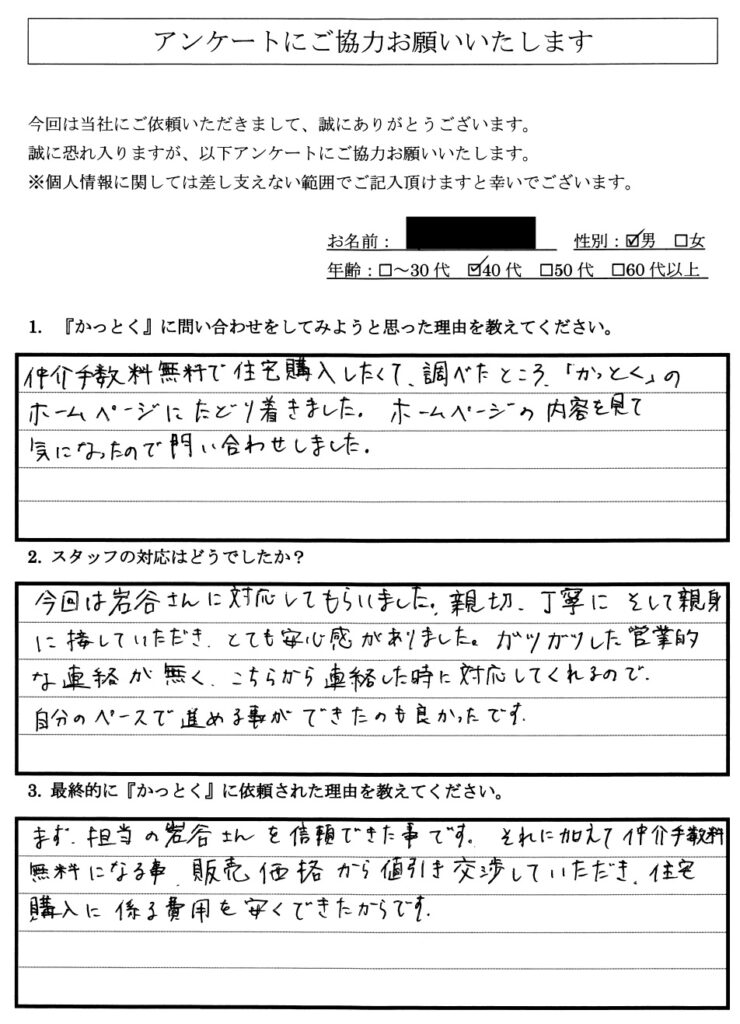 アンケートにご協力お願いいたします
今回は当社にご依頼いただきまして、誠にありがとうございます。
誠に恐れ入りますが、以下アンケートにご協力お願いいたします。
※個人情報に関しては差し支えない範囲でご記入頂けますと幸いでございます。
お名前： 性別：☑男 □女
年齢：□～30代 ☑40代 □50代 □60代以上
1. 『かっとく』に問い合わせをしてみようと思った理由を教えてください。
仲介手数料無料で住宅購入したくて、調べたところ、「かっとく」の
ホームページにたどり着きました。 ホームページの内容を見て
気になったので問い合わせしました。
2. スタッフの対応はどうでしたか？
今回は岩谷さんに対応してもらいました。親切、丁寧に そして親身
に接していただき、とても安心感がありました。ガツガツした営業的
な連絡が無く、こちらから連絡した時に対応してくれるので、
自分のペースで進める事ができたのも良かったです。
3. 最終的に『かっとく』に依頼された理由を教えてください。
まず、担当の岩谷さんを信頼できた事です。 それに加えて仲介手数料
無料になる事、販売価格から値引き交渉していただき、住宅
購入に係る費用を安くできたからです。